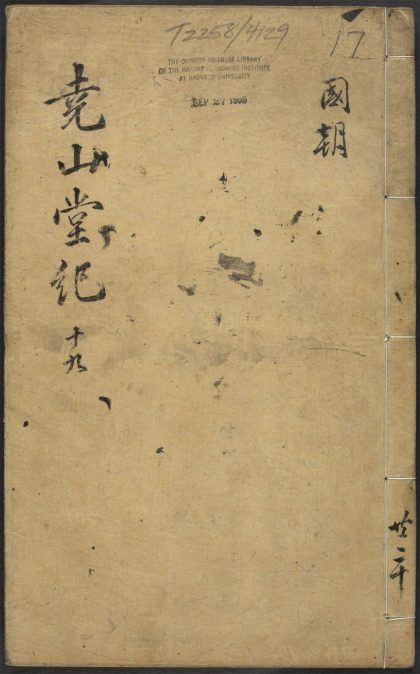 T2258/4129
17
THE CHINESE-JAPANESE LIBRARY
OF THE HARVARD-YENCHING INSTITUTE
AT HARVARD UNIVERSITY
SEP 27
國朝
尭山堂紀 十九
共二十